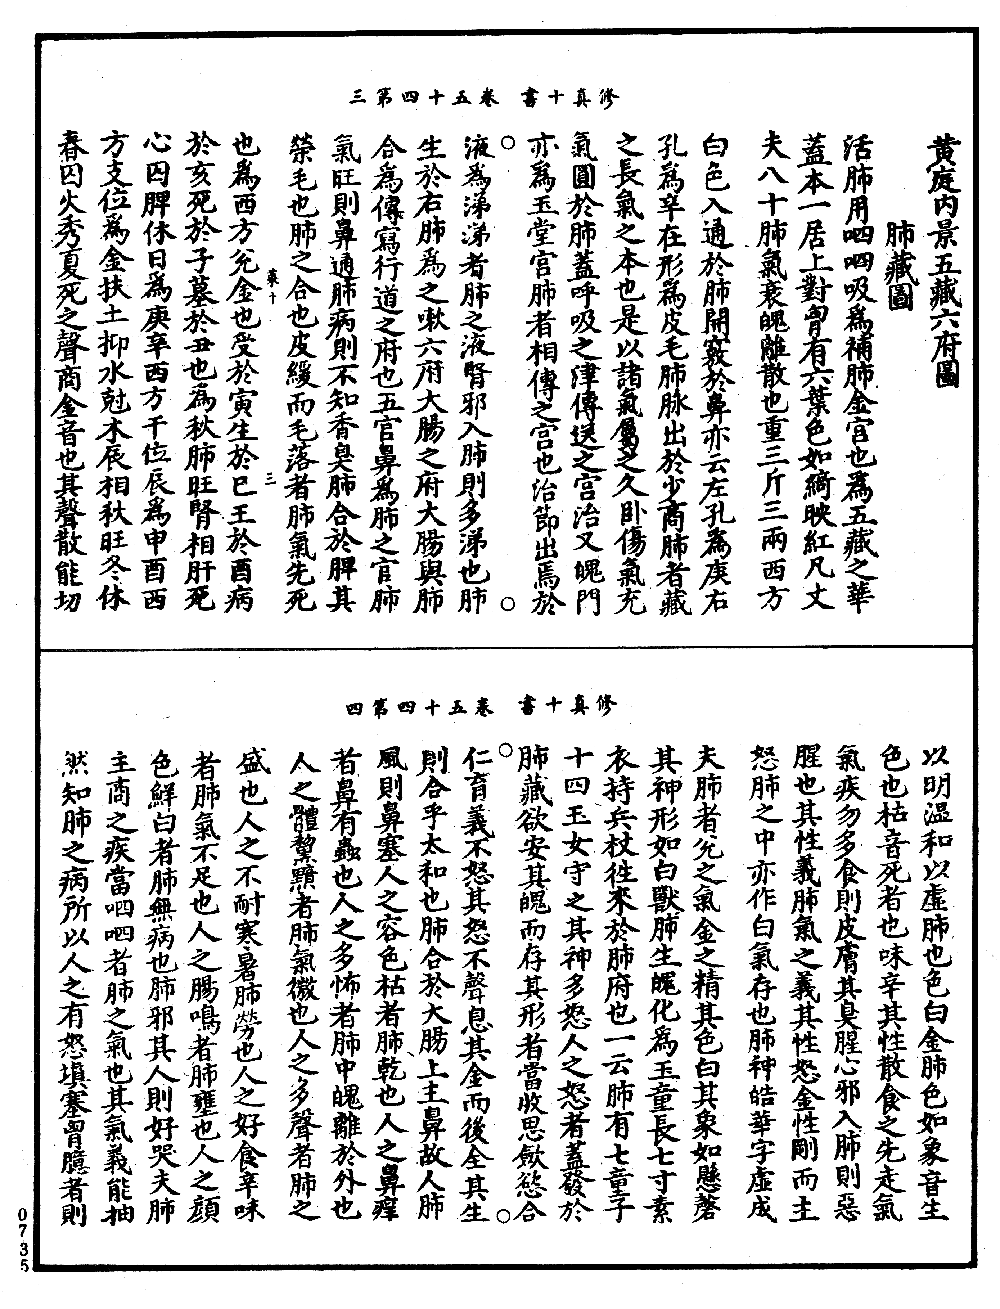 修真十書　卷五十四第三
黃庭內景五藏六府圖
肺藏圖
活肺用呬呬吸為補肺金宮也為五藏之華
蓋本一居上對胷有六葉色如綺映紅凡丈
夫八十肺氣衰魄離散也重三斤三兩西方
白色入通於肺開竅於鼻亦云左孔為庚右
孔為辛在形為皮毛肺脉出於少商肺者藏
之長氣之本也是以諸氣屬之久卧傷氣充
氣圓於肺蓋呼吸之津傳送之宮治又魄門
亦為玉堂宮肺者相傳之宮也治節出焉於
液為涕涕者肺之液腎邪入肺則多涕也肺
生於右肺為之嗽六府大腸之府大腸與肺
合為傳寫行道之府也五官鼻為肺之官肺
氣旺則鼻通肺病則不知香臭肺合於脾其
榮毛也肺之合也皮緩而毛落者肺氣先死
菜十　三
也為西方兊金也受於寅生於巳王於酉病
於亥死於子墓於丑也為秋肺旺腎相肝死
心囚脾休日為庚辛西方干位辰為申酉西
方支位為金扶土抑水尅木辰相秋旺冬休
春囚火秀夏死之聲商金音也其聲散能切
修真十書　卷五十四第四
以明溫和以虛肺也色白金肺色如象音生
色也枯音死者也味辛其性散食之先走氣
氣疾勿多食則皮膚其臭腥心邪入肺則惡
腥也其性義肺氣之義其性怒金性剛而主
怒肺之中亦作白氣存也肺神皓華字虛成
夫肺者兊之氣金之精其色白其象如懸磬
其神形如白獸肺生魄化為玉童長七寸素
衣持兵杖徃來於肺府也一云肺有七童子
十四玉女守之其神多怒人之怒者蓋發於
肺藏欲安其魄而存其形者當收思歛慾合
仁育義不怒其怒不聲息其金而後全其生
則合乎太和也肺合於大腸上主鼻故人肺
風則鼻塞人之容色枯者肺乾也人之鼻癢
者鼻有蟲也人之多怖者肺中魄離於外也
人之體黧黯者肺氣微也人之多聲者肺之
盛也人之不耐寒暑肺勞也人之好食辛味
者肺氣不足也人之腸鳴者肺壅也人之顏
色鮮白者肺無病也肺邪其人則好哭夫肺
主商之疾當呬呬者肺之氣也其氣義能抽
然知肺之病所以人之有怒填塞胷臆者則
0735